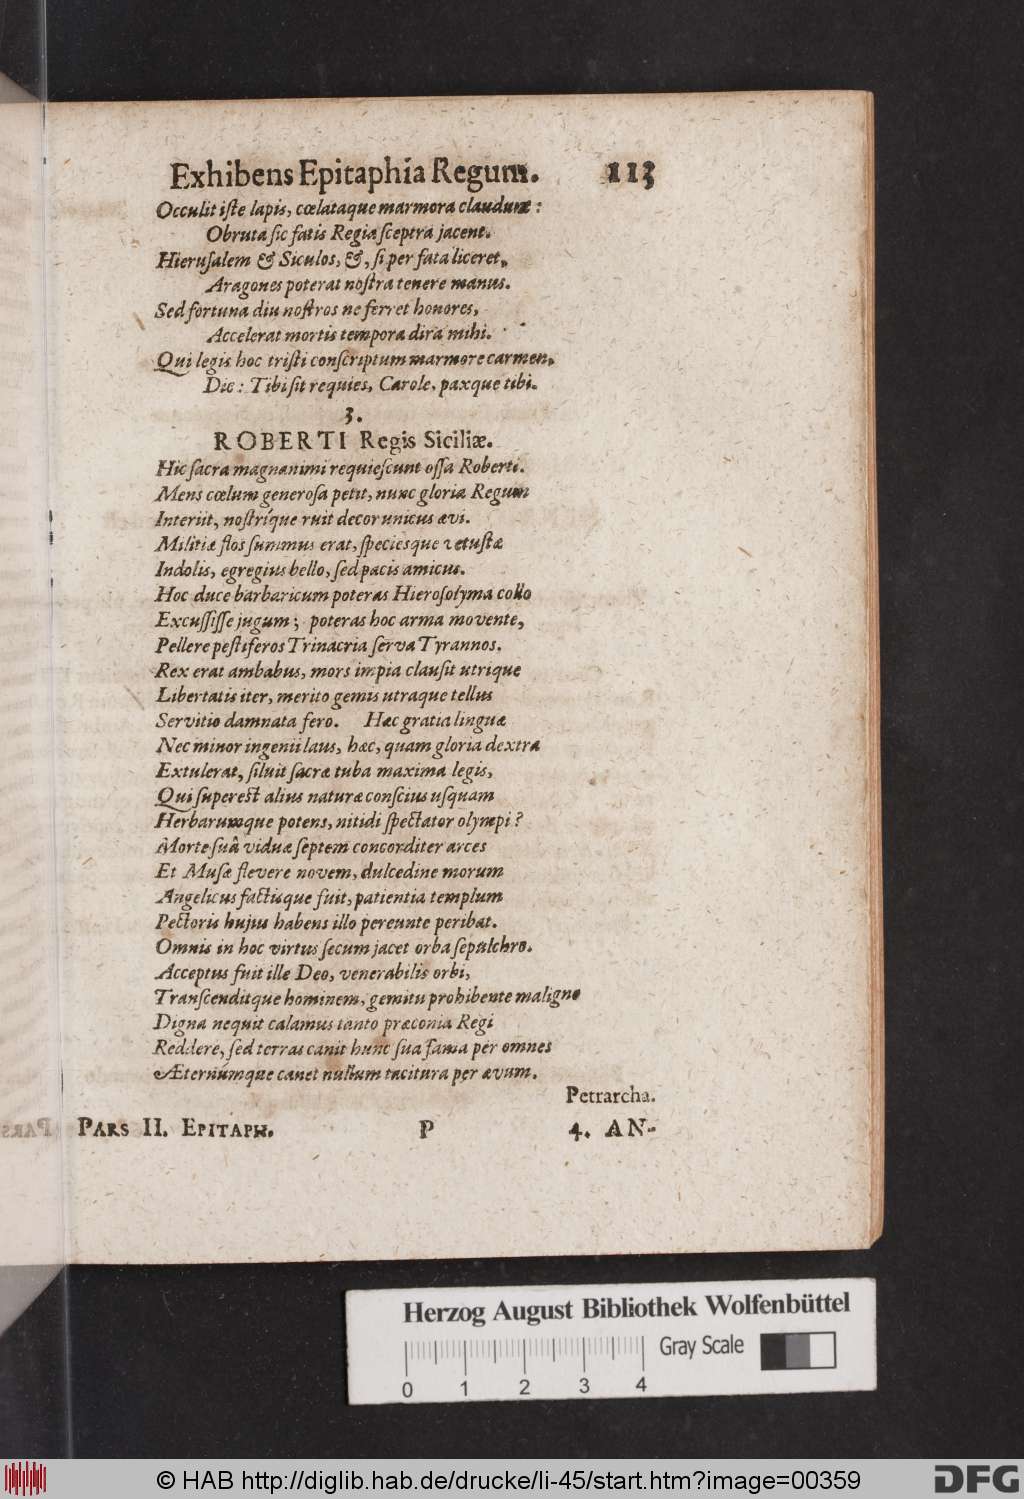 Exhibens Epitaphía Regum. 113
Occulit iſte lapis, cœlataque marmora claudunt :
Obruta ſic fatis Regia ſceptra jacent.
Hieruſalem & Siculos, &, ſi per fata liceret,
Aragones poterat noſtra tenere manus.
Sed fortuna diu noſtros ne ferret honores,
Accelerat mortis tempora dira mihi.
Qui legis hoc triſti conſcriptum marmore carmen,
Dic : Tibi ſit requies, Carole, paxque tibi.
3.
ROBERTI Regis Siciliæ.
Hic ſacra magnanimi requieſcunt oſſa Roberti.
Mens cœlum generoſa petit, nunc gloria Regum
Interiit, noſtríque ruit decor unicus ævi.
Militiæ flos ſummus erat, ſpeciesque vetuſtæ
Indolis, egregius bello, ſed pacis amicus.
Hoc duce barbaricum poteras Hieroſolyma collo
Excuſſiſſe jugum ; poteras hoc arma movente,
Pellere peſtiferos Trinacria ſerva Tyrannos.
Rex erat ambabus, mors impia clauſit utrique
Libertatis iter, merito gemis utraque tellus
Servitio damnata fero. Hæc gratia linguæ
Nec minor ingenii laus, hæc, quam gloria dextra
Extulerat, ſiluit ſacræ tuba maxima legis,
Qui ſupereſt alius naturæ conſcius uſquam
Herbarumque potens, nitidi ſpectator olympi ?
Morte ſuâ viduæ ſeptem concorditer arces
Et Muſæ flevere novem, dulcedine morum
Angelicus factisque fuit, patientia templum
Pectoris hujus habens illo pereunte peribat.
Omnis in hoc virtus ſecum jacet orba ſepulchro.
Acceptus fuit ille Deo, venerabilis orbi,
Tranſcenditque hominem, gemitu prohibente maligno
Digna nequit calamus tanto præconia Regi
Reddere, ſed terras canit hunc ſua fama per omnes
Æternúmque canet nullum tacitura per ævum.
Petrarcha.
PARS II. EPITAPH. P 4. AN-
Herzog August Bibliothek Wolfenbüttel
Gray Scale
0 1 2 3 4
© HAB http://diglib.hab.de/drucke/li-45/start.htm?image=00359
DFG